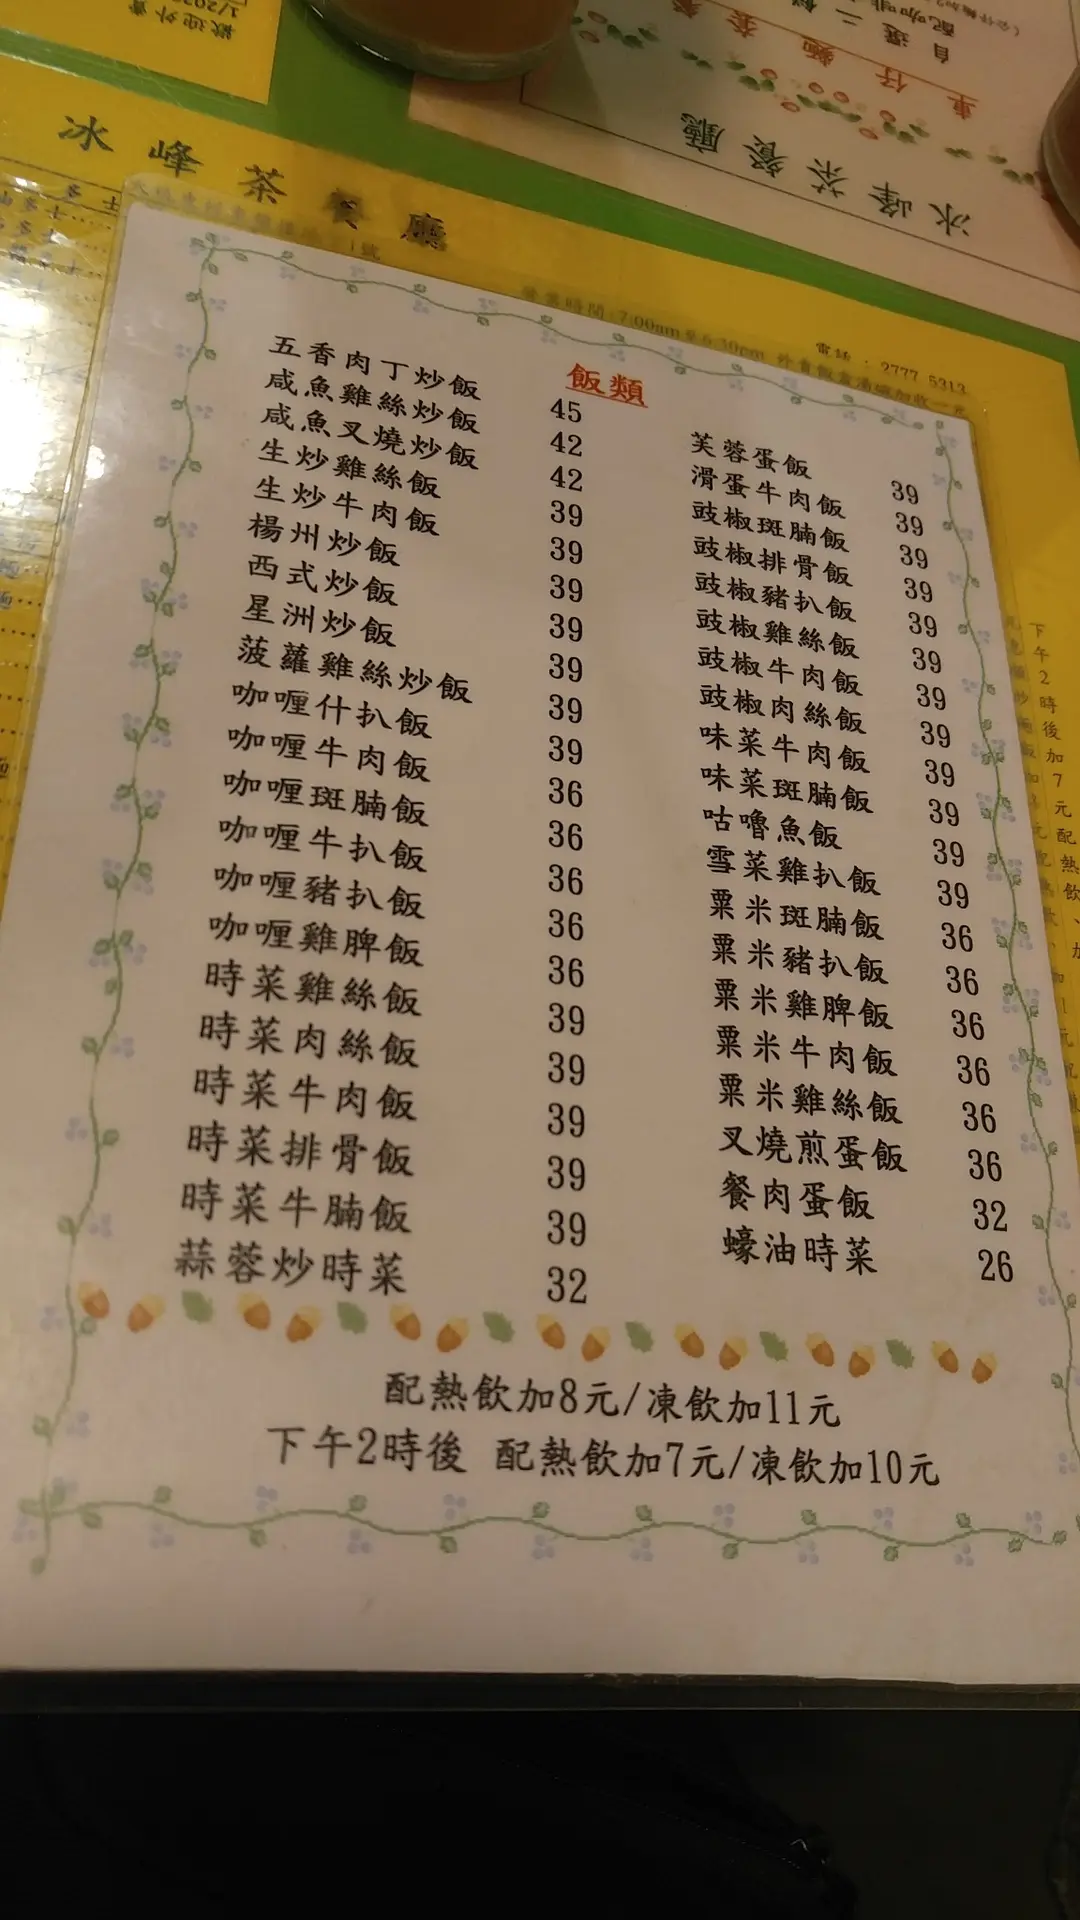 冰峰茶餐廳
電話：2777 5313
飯類
五香肉丁炒飯 45
咸魚雞絲炒飯 42
咸魚叉燒炒飯 42
生炒雞絲飯 39
生炒牛肉飯 39
楊州炒飯 39
西式炒飯 39
星洲炒飯 39
菠蘿雞絲炒飯 39
咖喱什扒飯 39
咖喱牛肉飯 36
咖喱斑腩飯 36
咖喱牛扒飯 36
咖喱豬扒飯 36
咖喱雞脾飯 36
時菜雞絲飯 39
時菜肉絲飯 39
時菜牛肉飯 39
時菜排骨飯 39
時菜牛腩飯 39
蒜蓉炒時菜 32
芙蓉蛋飯 39
滑蛋牛肉飯 39
豉椒斑腩飯 39
豉椒排骨飯 39
豉椒豬扒飯 39
豉椒雞絲飯 39
豉椒牛肉飯 39
豉椒肉絲飯 39
味菜牛肉飯 39
味菜斑腩飯 39
咕嚕魚飯 39
雪菜雞扒飯 39
粟米斑腩飯 36
粟米豬扒飯 36
粟米雞脾飯 36
粟米牛肉飯 36
粟米雞絲飯 36
叉燒煎蛋飯 36
餐肉蛋飯 32
蠔油時菜 26
配熱飲加8元/凍飲加11元
下午2時後 配熱飲加7元/凍飲加10元
下午2時後加7元配熱飲、
冰峰茶餐廳
車仔麵套餐
歡迎外賣